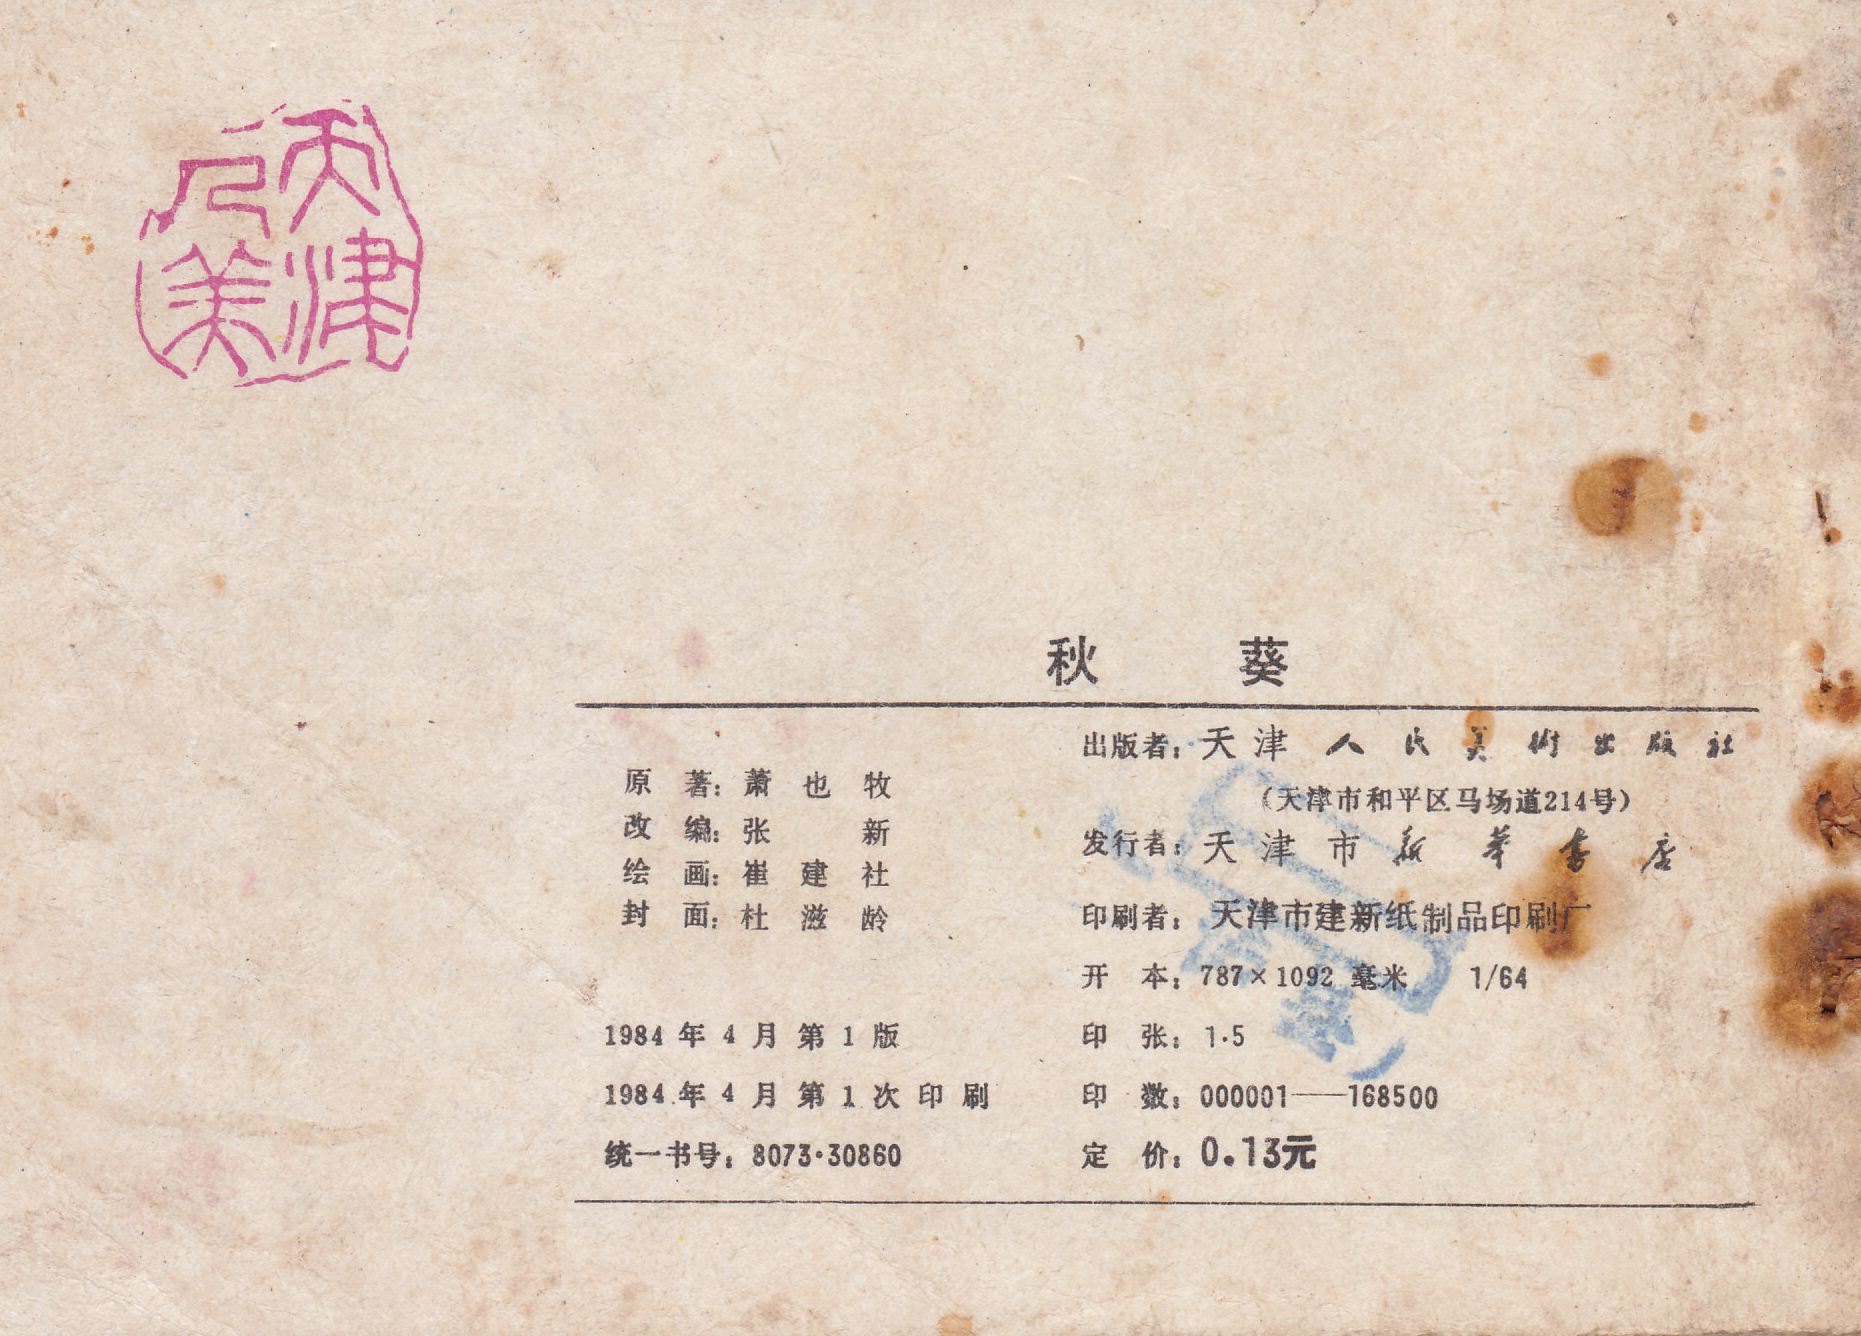 天津
人美
秋 葵
原 著：萧也牧
改 编：张 新
绘 画：崔建社
封 面：杜滋龄
1984年4月第1版
1984年4月第1次印刷
统一书号：8073·30860
出版者：天津人民美術出版社
（天津市和平区马场道214号）
发行者：天津市新华書店
印刷者：天津市建新纸制品印刷厂
开 本：787×1092 毫米 1/64
印 张：1·5
印 数：000001——168500
定 价：0.13元